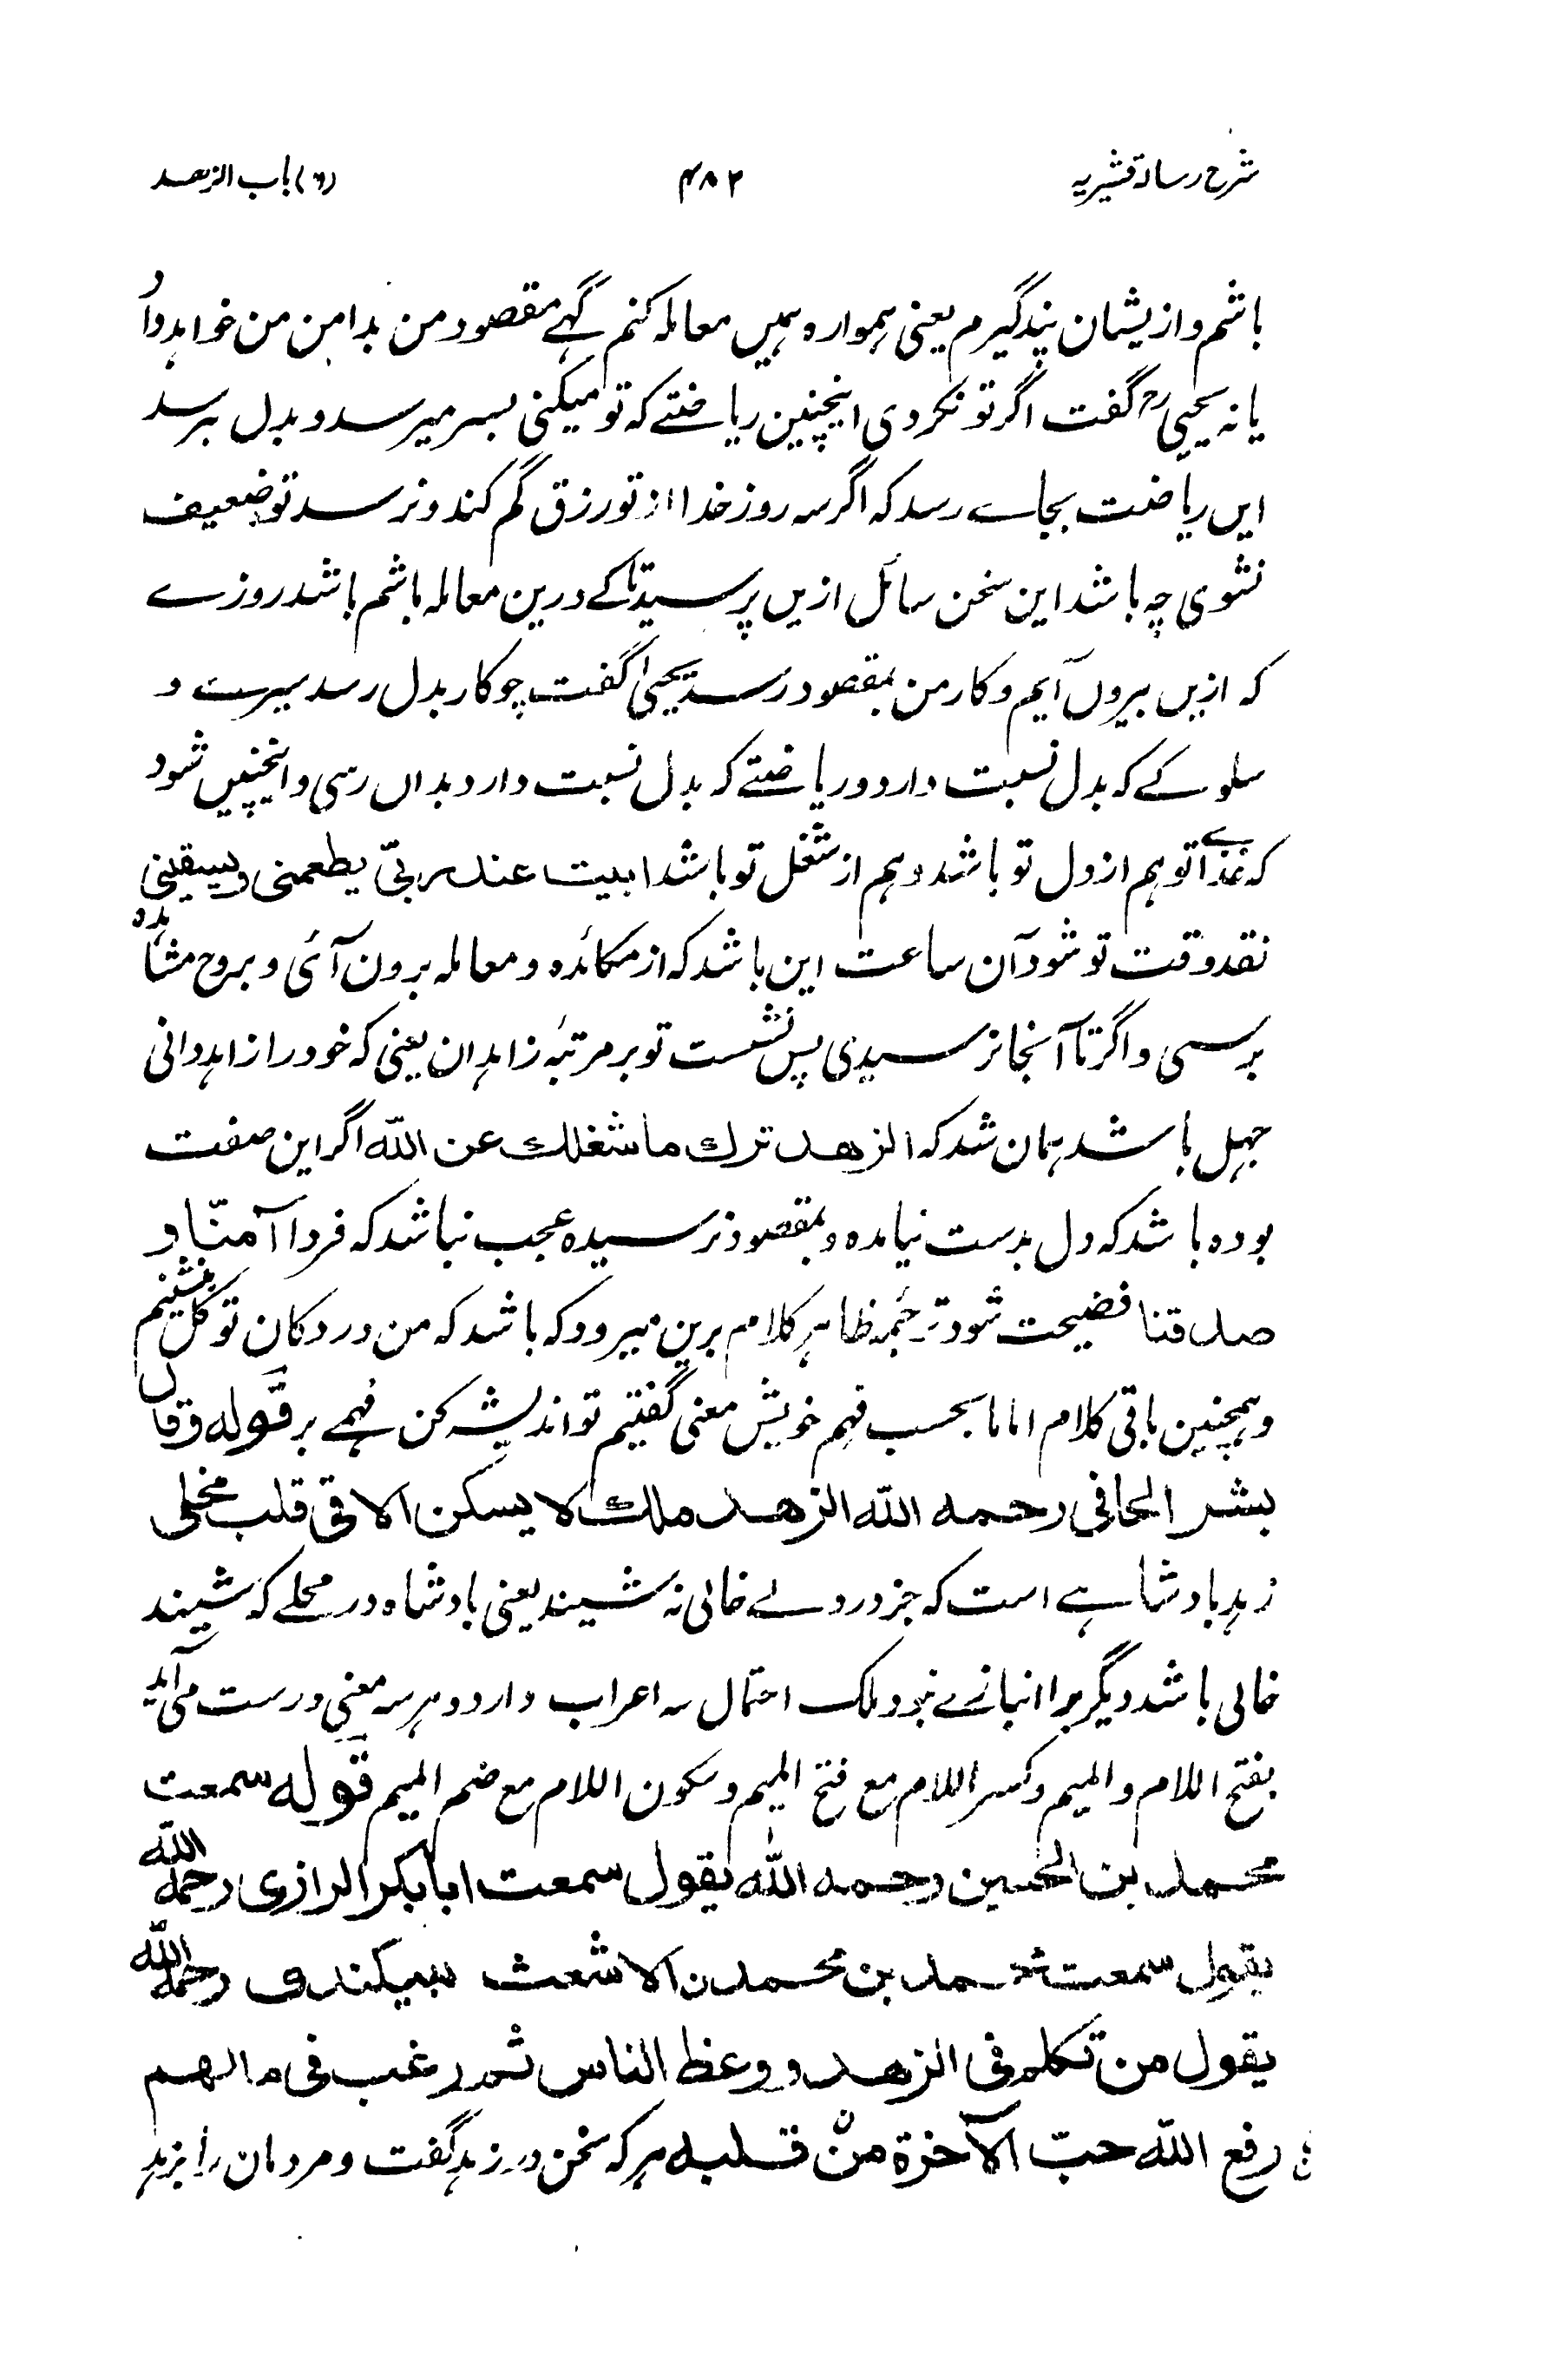 شرح رسالہ قشیریہ ۴۸۲ (۱۶) باب الزھد
باشم و ازیشان پندگیرم یعنی ہموارہ ہمیں معاملہ کنم گہے مقصود من بدامن من خواہد داد
یا نہ یحیی رح گفت اگر تو نکردی اینچنین ریاضتے کہ تو میکنی بسر میرسد و بدل برسد
ایں ریاضت بجاے رسد کہ اگر سہ روز خدا از تو رزق گم کند و نرسد تو ضعیف
نشوی چہ باشد این سخن سائل ازیں پرسید تاکے درین معاملہ باشم باشد روزے
کہ ازیں بیروں آیم و کار من بمقصود رسد یحییٰ گفت چو کار بدل رسد سیرت و
سلوکے کہ بدل نسبت دارد و ریاضتے کہ بدل نسبت دارد بداں رسی و اینچنیں شود
کہ غذاے تو ہم از دل تو باشد و ہم از شغل تو باشد ابیت عند ربیّ یطعمنی ویسقینی
نقد وقت تو شود آن ساعت این باشد کہ از مکائدہ و معاملہ برون آئی و بروح مشاہدہ
برسی و اگر تا آنجا نرسیدی پس نشست تو بر مرتبۂ زاہدان یعنی کہ خود را زاہد دانی
جہل باشد ہمان شد کہ الزھد ترك ما شغلك عن اللّٰه اگر این صفت
بودہ باشد کہ دل بدست نیامدہ و بمقصود نرسیدہ عجب نباشد کہ فردا آمنّا و
صدقنا فضیحت شود ترجمہ ظاہر کلام برین میرود کہ باشد کہ من در دکان توکل بنشینم
و ہمچنین باقی کلام اما ما بحسب فہم خویش معنی گفتیم تو اندیشہ کن فہمے بر قوله وقال
بشر الحافی رحمه اللّٰه الزھد ملك لا یسکن الا فی قلب مخلی
زہد بادشاہے است کہ جز در دلے خالی نہ شیند یعنی بادشاہ در محلے کہ شیند
خالی باشد دیگر برا انبازے نبود ملک احتمال سہ اعراب دارد و ہر سہ معنی درست می آید
بفتح اللام و المیم و کسر اللام مع فتح المیم و سکون اللام مع ضم المیم قوله سمعت
محمد بن الحسین رحمه اللّٰه یقول سمعت ابا بکر الرازی رحمه اللّٰه
یقول سمعت محمد بن محمد بن الاشعث بیکندی رحمه اللّٰه
یقول من تکلم فی الزھد و وعظ الناس ثم رغب فی مالھم
رفع اللّٰه حبّ الآخرة من قلبه ہر کہ سخن در زہد گفت و مردمان را بزہد